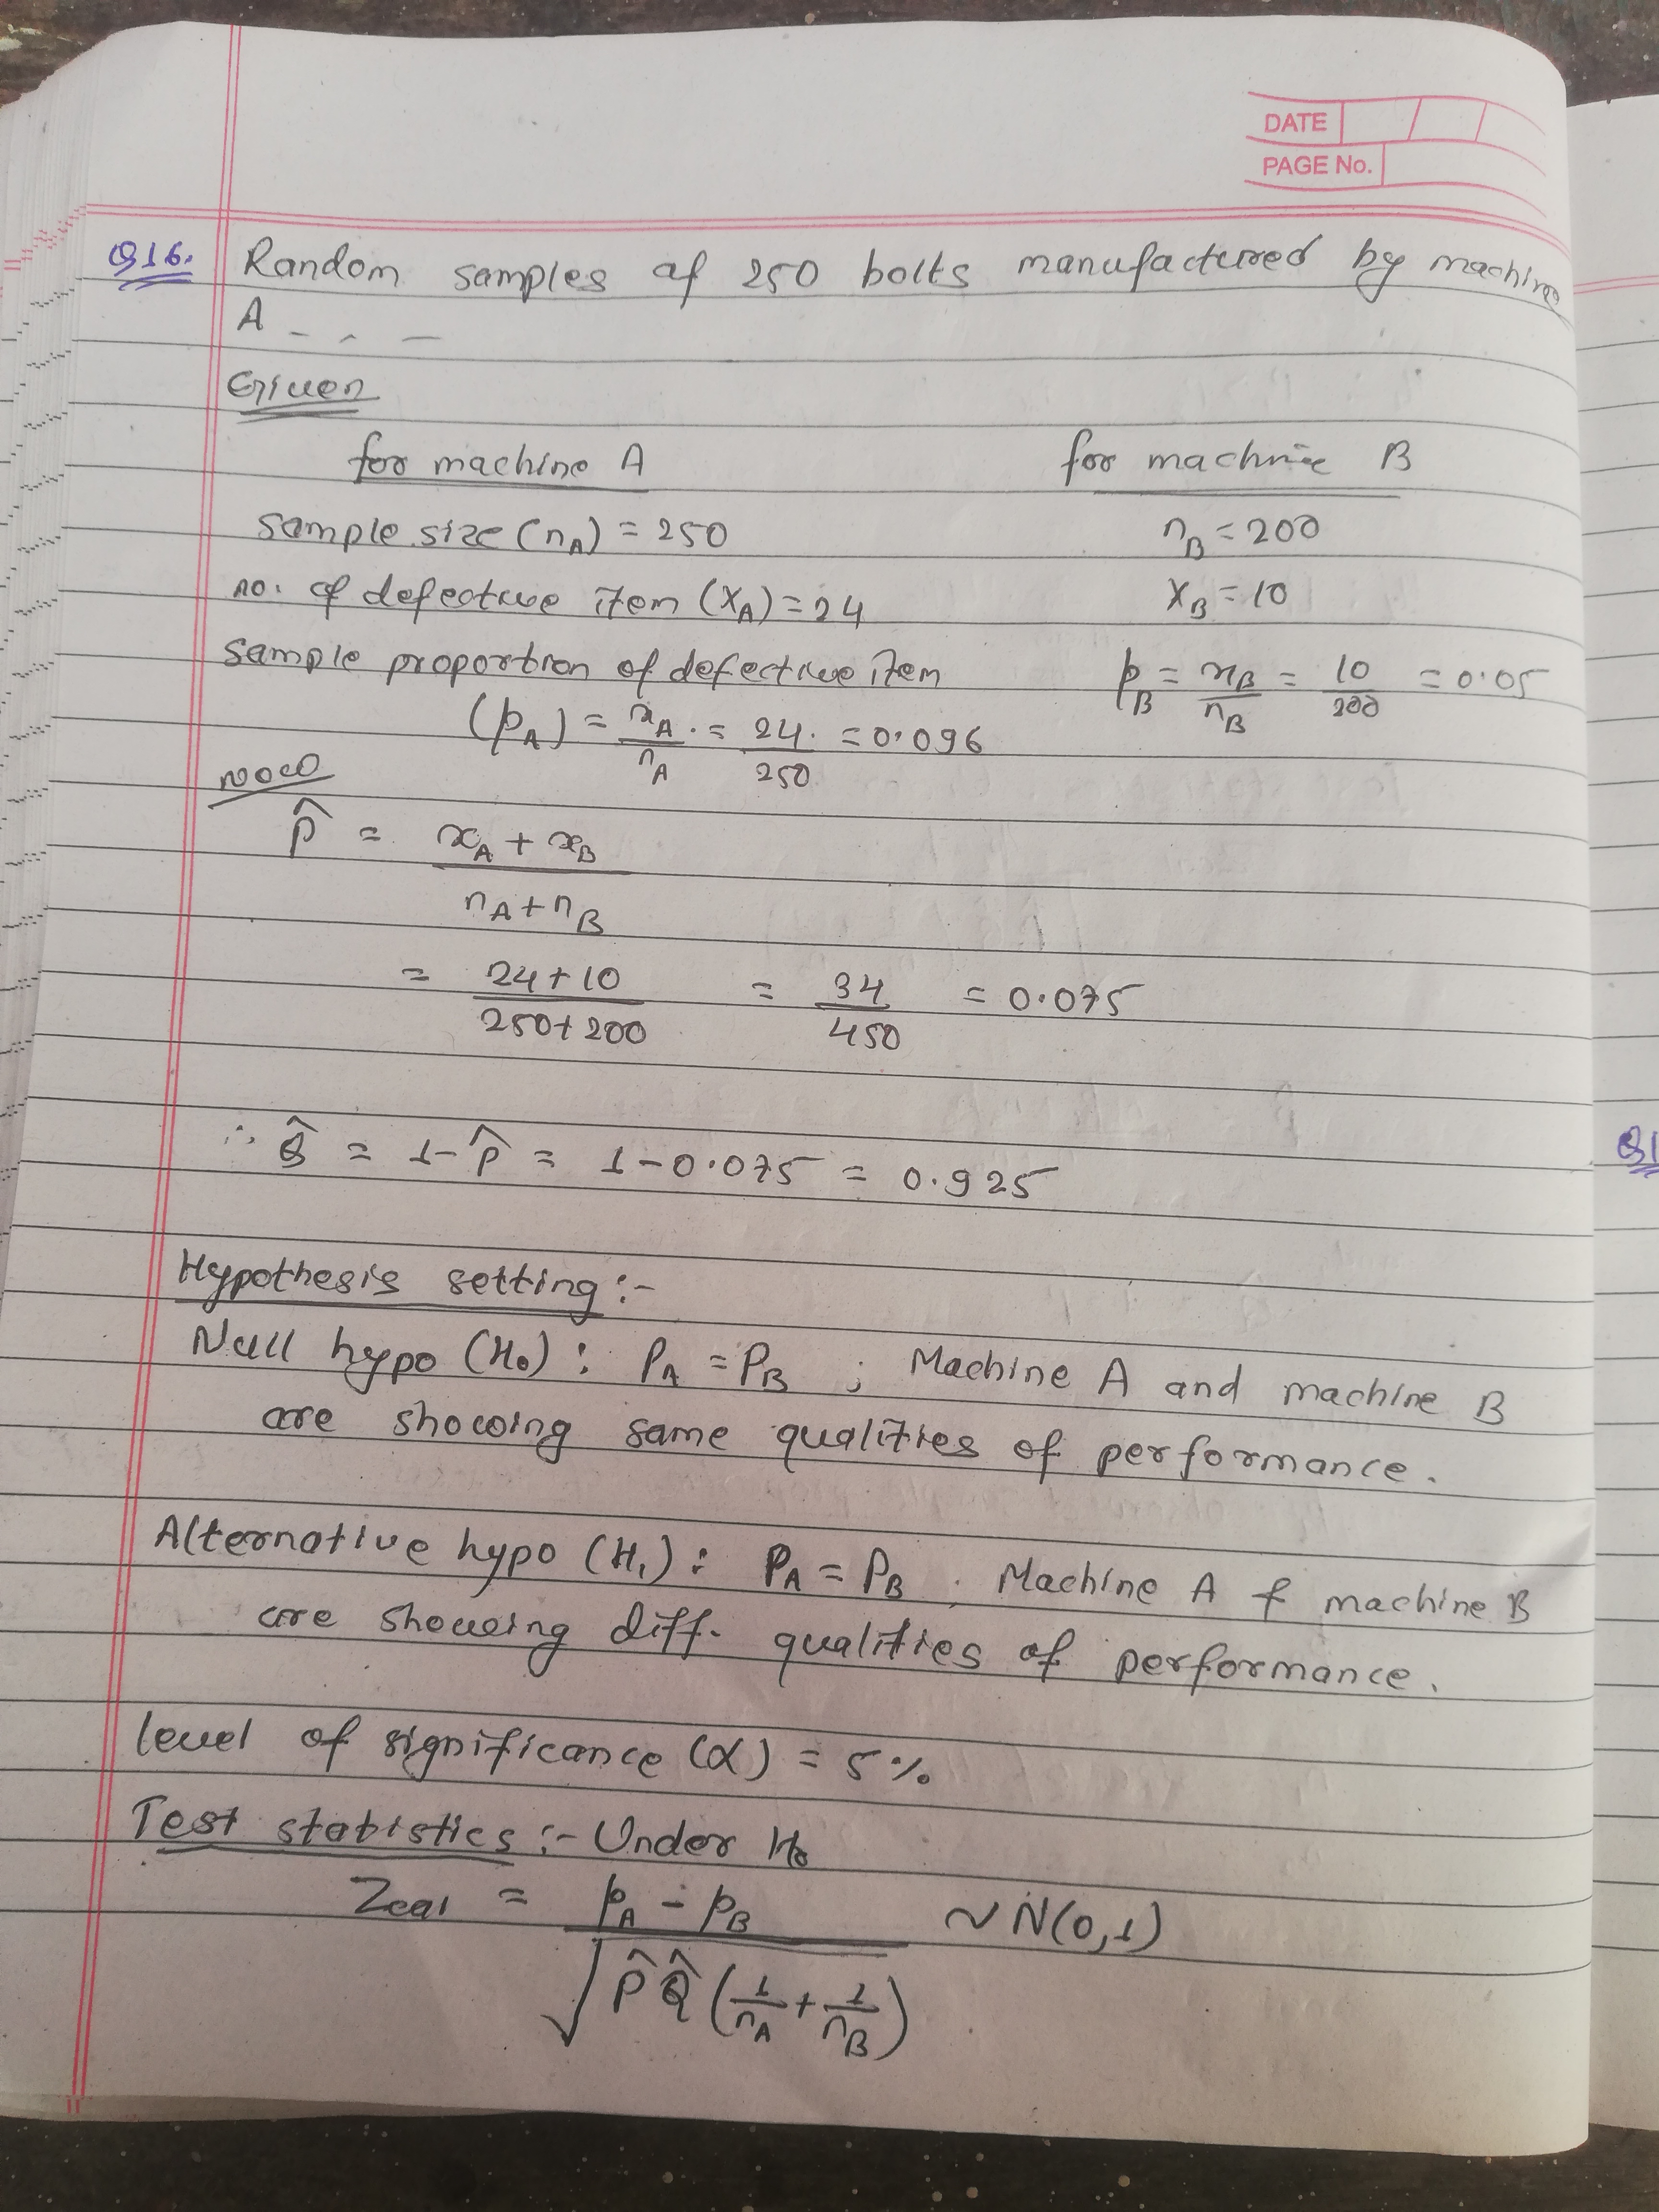 DATE
PAGE No.
Q16. Random samples of 250 bolts manufactured by machine
A - - -
Given
for machine A for machine B
sample size (nA) = 250 nB = 200
no. of defective item (XA) = 24 XB = 10
sample proportion of defective item pB = xB/nB = 10/200 = 0.05
(pA) = xA/nA = 24/250 = 0.096
Now
P̂ = xA + xB / nA + nB
= 24+10 / 250+200 = 34/450 = 0.075
∴ Q̂ = 1-P̂ = 1-0.075 = 0.925
Q1
Hypothesis setting :-
Null hypo (H0) : PA = PB ; Machine A and machine B
are showing same qualities of performance.
Alternative hypo (H1) : PA = PB . Machine A & machine B
are showing diff. qualities of performance.
level of significance (α) = 5%
Test statistics :- Under H0
Zcal = pA - pB / √P̂Q̂(1/nA + 1/nB) ~ N(0,1)